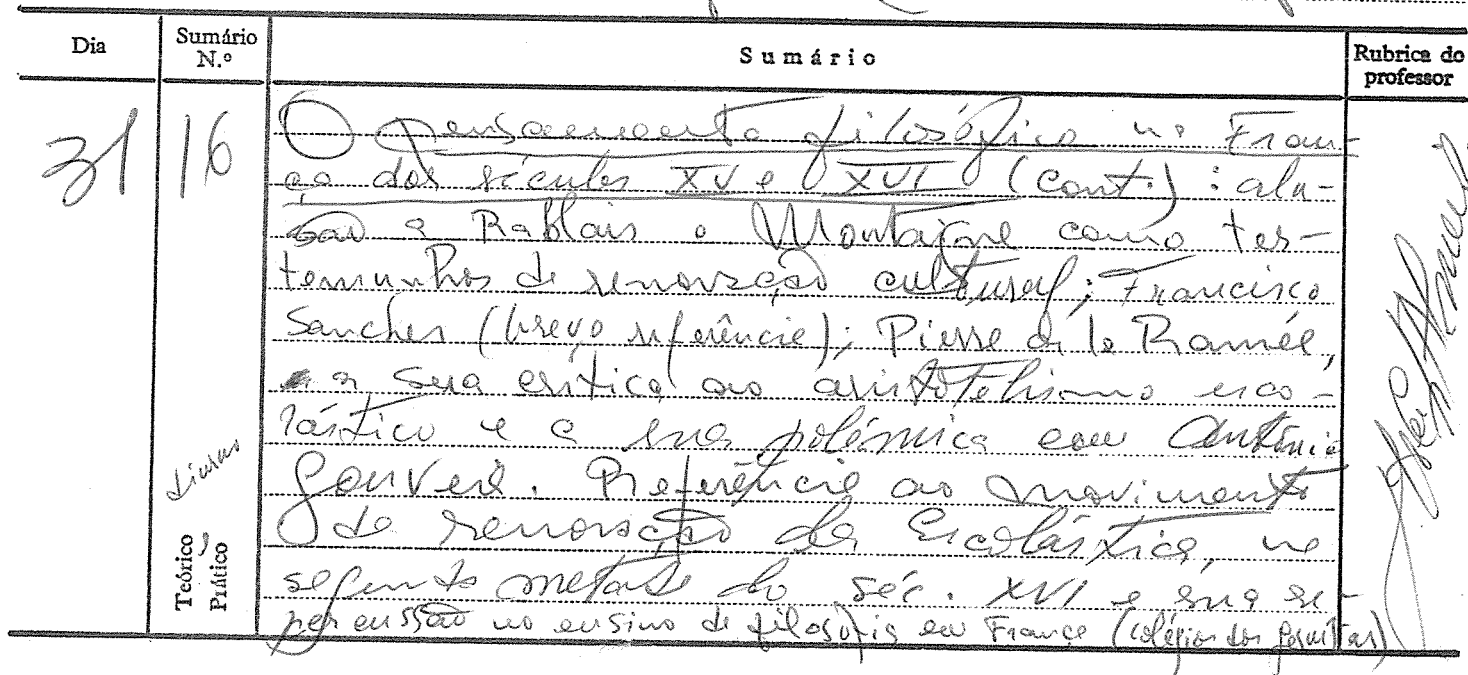 Dia
Sumário N.º
Sumário
Rubrica do professor
31
16
O pensamento filosófico na Fran-
ça dos séculos XV e XVI (cont.): alu-
são a Rablais e Montaigne como tes-
temunhos de renovação cultural; Francisco
Sanches (breve referência); Pierre de la Ramée,
a sua crítica ao aristotelismo esco-
lástico e a sua polémica com António
Gouveia. Referência ao movimento
de renovação da Escolástica, na
segunda metade do séc. XVI e sua re-
percussão no ensino de filosofia em França (colégios dos Jesuítas)
Teórico
Prático